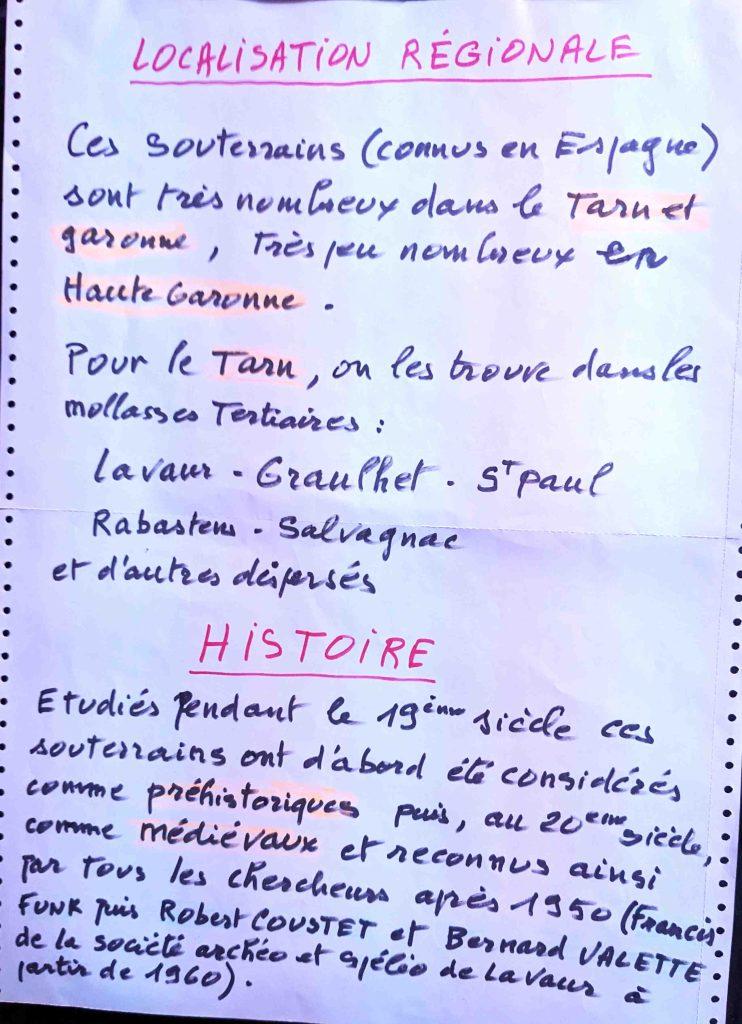 LOCALISATION RÉGIONALE
Ces souterrains (connus en Espagne)
sont très nombreux dans le Tarn et
garonne, très peu nombreux en
Haute Garonne.
Pour le Tarn, on les trouve dans les
mollasses Tertiaires :
Lavaur - Graulhet - St Paul
Rabastens - Salvagnac
et d'autres dispersés
HISTOIRE
Etudiés pendant le 19ème siècle ces
souterrains ont d'abord été considérés
comme préhistoriques puis, au 20eme siècle,
comme médiévaux et reconnus ainsi
par tous les chercheurs après 1950 (Francis
FUNK puis Robert COUSTET et Bernard VALETTE
de la société archéo et spéléo de Lavaur à
partir de 1960).